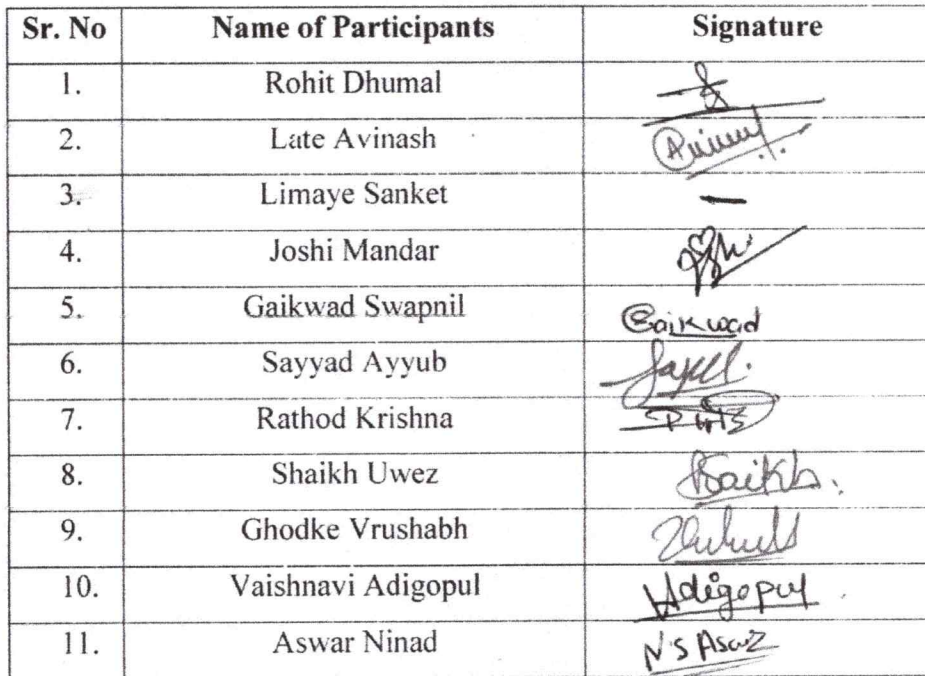 Sr. No Name of Participants Signature
1. Rohit Dhumal
2. Late Avinash
3. Limaye Sanket —
4. Joshi Mandar
5. Gaikwad Swapnil Gaikwad
6. Sayyad Ayyub
7. Rathod Krishna
8. Shaikh Uwez
9. Ghodke Vrushabh
10. Vaishnavi Adigopul Adigopul
11. Aswar Ninad N S Aswar